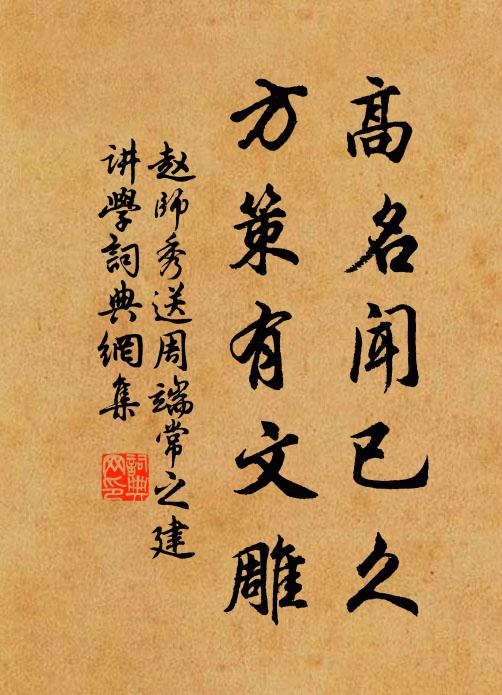 高名闻已久
方策有文雕
赵師秀送周端常之建
讲學詞典網集
詞典
网印